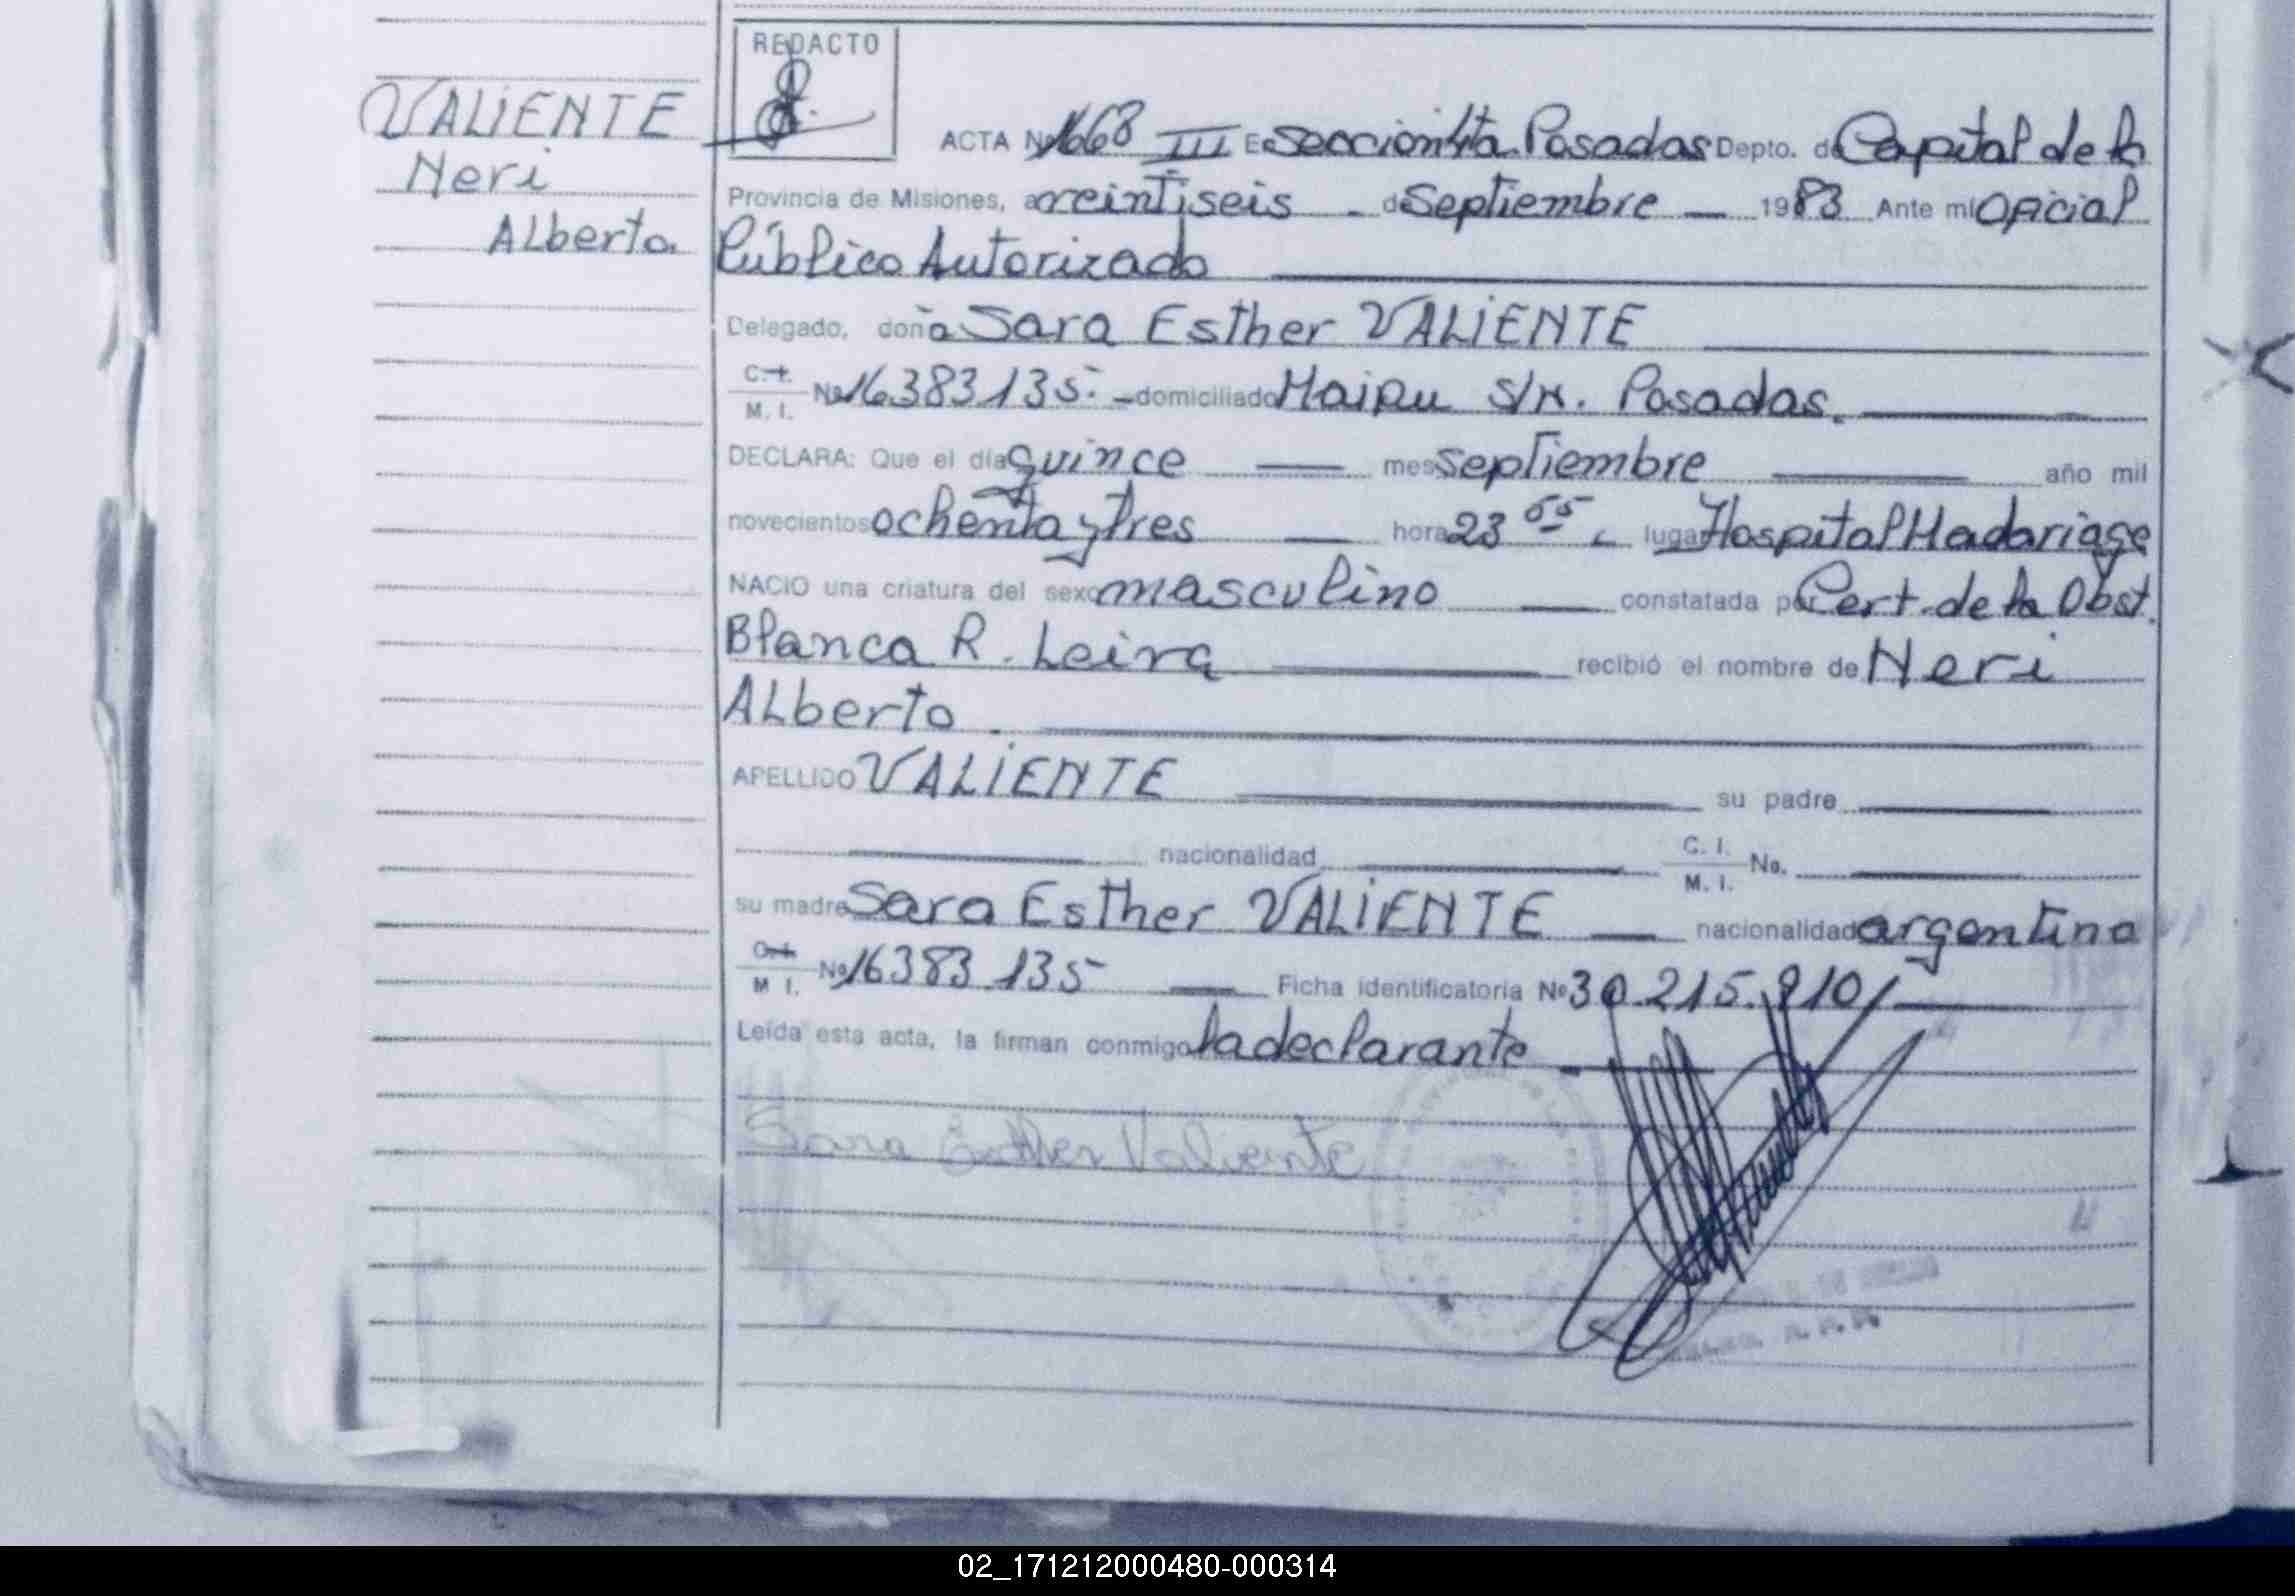 REDACTO
VALIENTE
Neri
Alberto
ACTA No 1668 III En Seccion 4ta. Posadas Depto. de Capital de la
Provincia de Misiones, a veintiseis - de Septiembre — 1983 Ante mi Oficial
Público Autorizado
Delegado, doña Sara Esther VALIENTE
C. I.
M. I. No 16383135. - domiciliado Maipu s/n. Posadas.
DECLARA: Que el día quince — mes Septiembre — año mil
novecientos ochenta y tres — hora 23 55 - lugar Hospital Madariaga
NACIO una criatura del sexo masculino — constatada por Cert. de la Obst.
Blanca R. Leiva — recibió el nombre de Neri
Alberto
APELLIDO VALIENTE — su padre —
— nacionalidad — C. I.
M. I. No. —
su madre Sara Esther VALIENTE — nacionalidad argentina
M I. No 16383.135 — Ficha identificatoria No 30.215.910/
Leída esta acta, la firman conmigo la declarante
Sara Esther Valiente
02_171212000480-000314